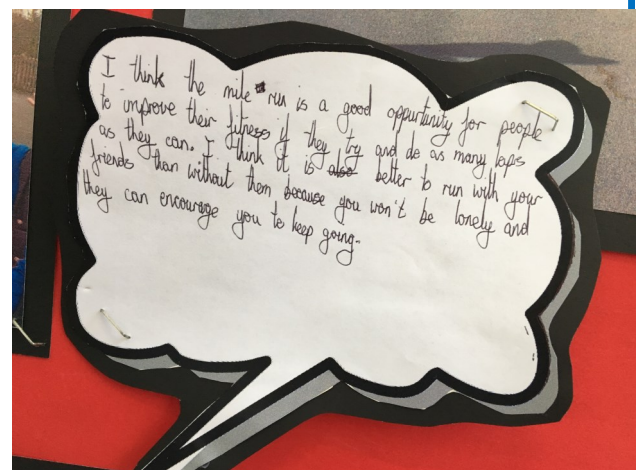 I think the mile run is a good oppurtunity for people
to improve their fitness if they try and do as many laps
as they can. I think it is also better to run with your
friends than without them because you won't be lonely and
they can encourage you to keep going.